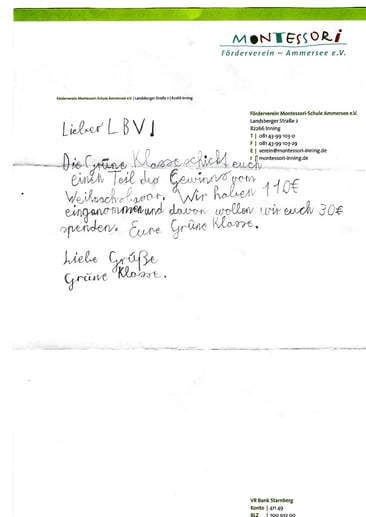 MONTESSORI
Förderverein – Ammersee e.V.
Förderverein Montessori-Schule Ammersee e.V. | Landsberger Straße 2 | 82266 Inning
Förderverein Montessori-Schule Ammersee e.V.
Landsberger Straße 2
82266 Inning
T | 081 43-99 103-0
F | 081 43-99 103-29
E | verein@montessori-inning.de
I | montessori-inning.de
Lieber LBV!
Die Grüne Klasse schickt euch
einen Teil des Gewinns vom
Wir haben 110€
eingenommen und davon wollen wir euch 30€
spenden. Eure Grüne Klasse.
Liebe Grüße
Grüne Klasse.
VR Bank Starnberg
Konto | 411 49
BLZ | 700 932 00